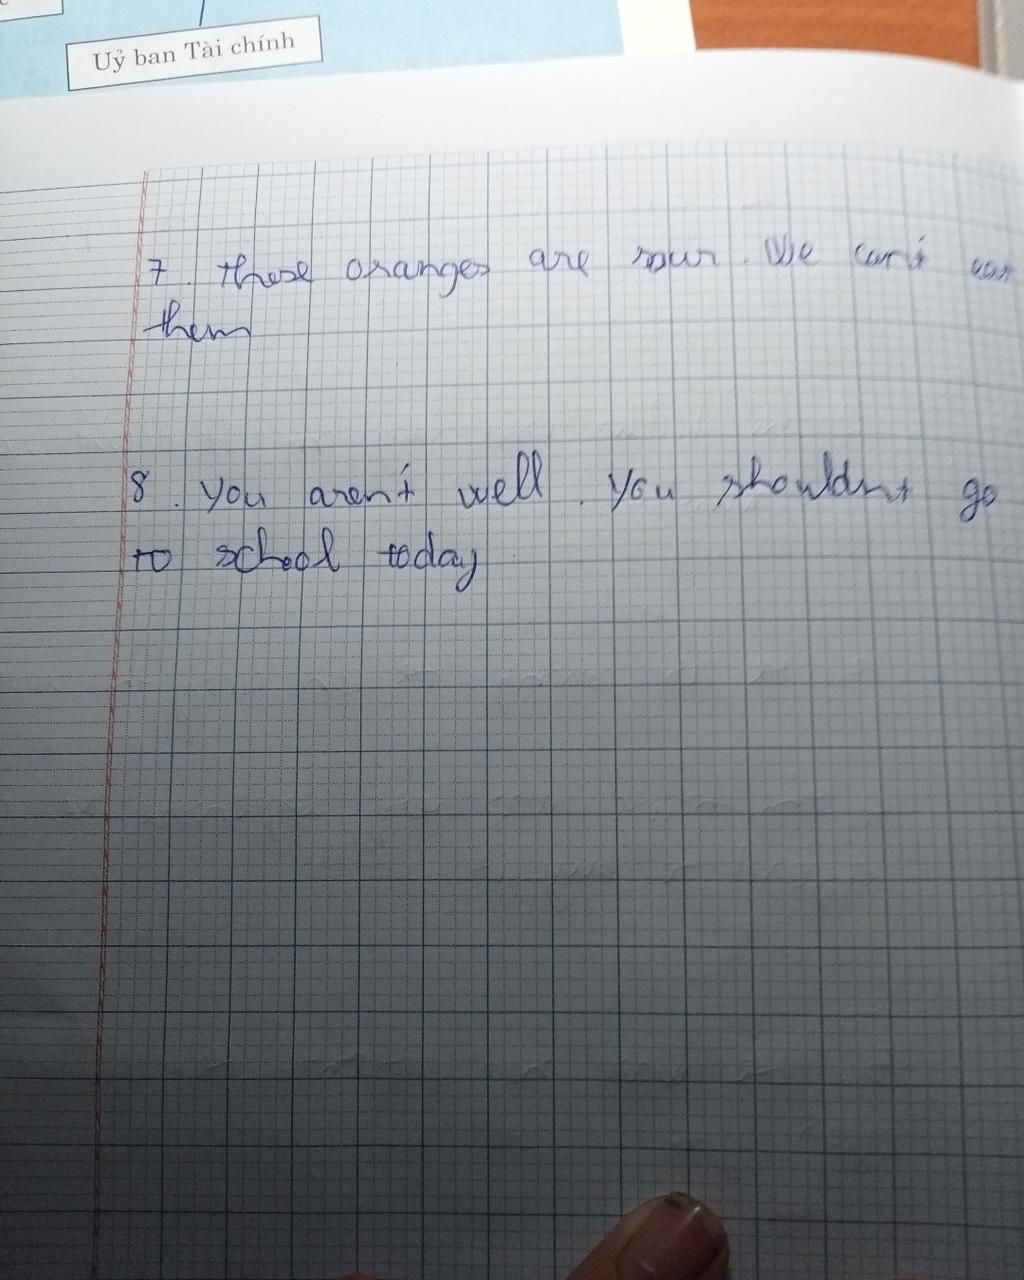 Uỷ ban Tài chính
7. these oranges are sour. We can't
them
8. you aren't well. you shouldnt go
to school today